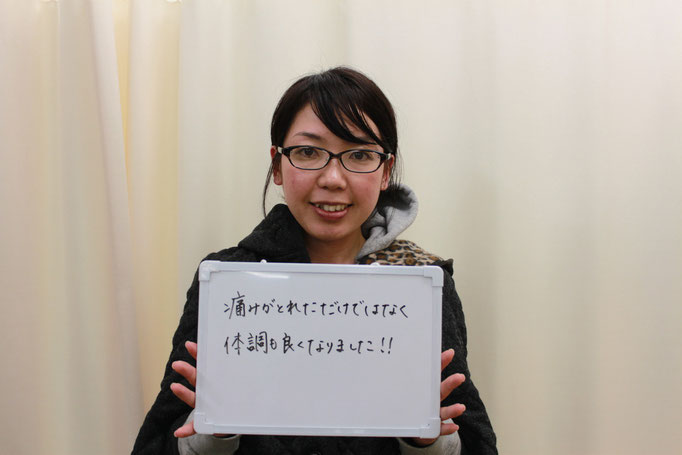 痛みがとれただけではなく
体調も良くなりました!!